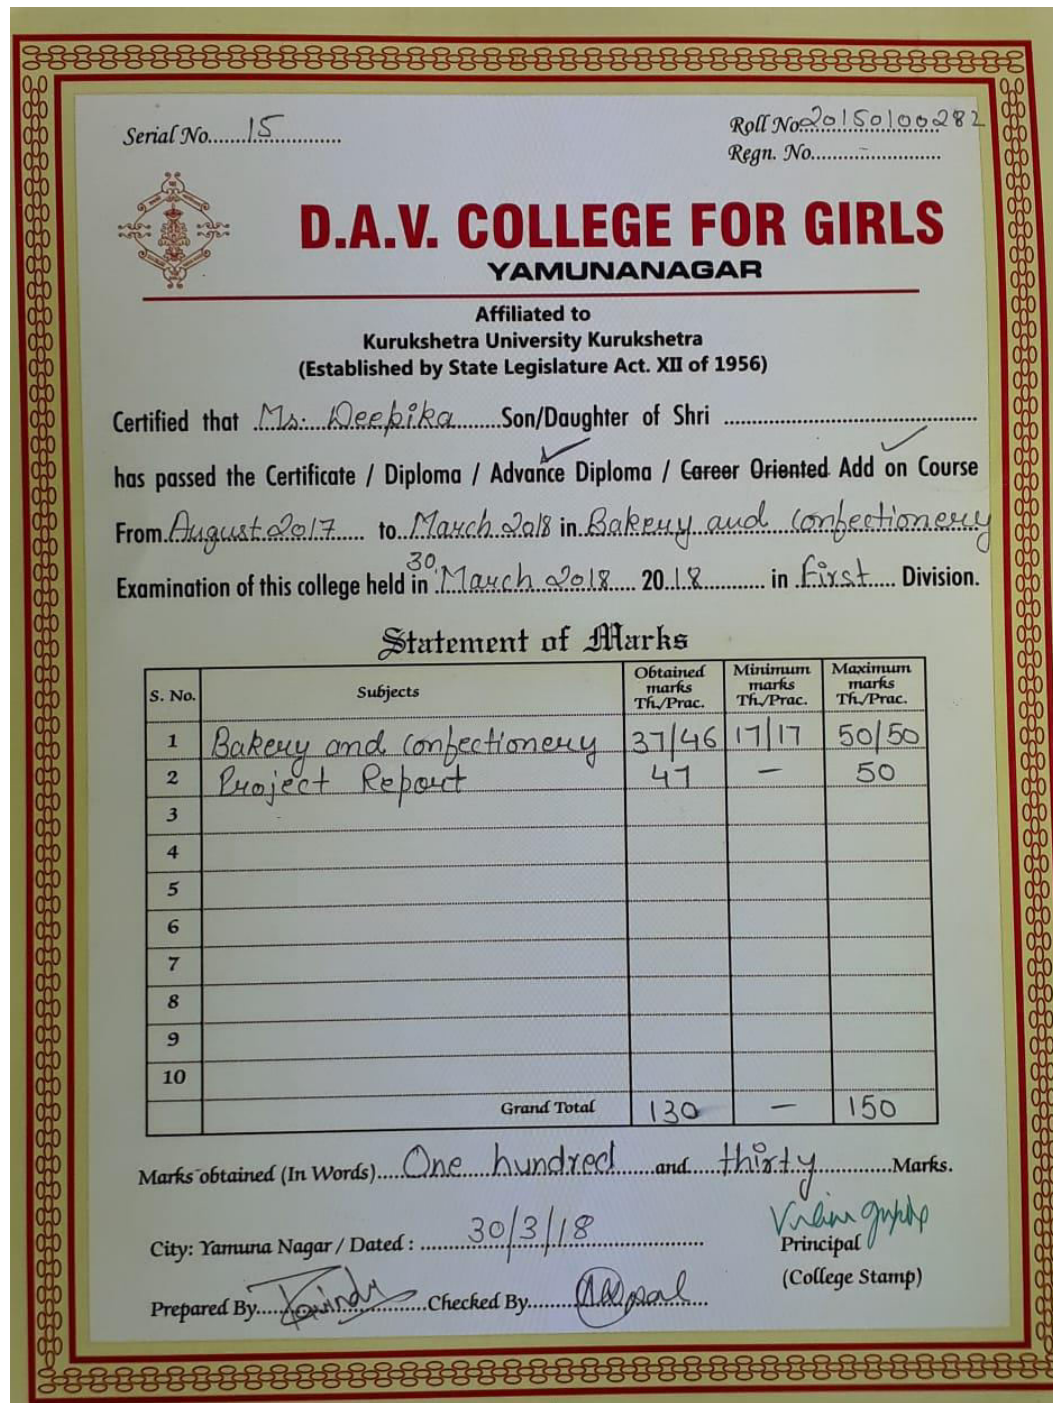 Serial No. 15
Roll No. 20150100282
Regn. No. -
D.A.V. COLLEGE FOR GIRLS
YAMUNANAGAR
Affiliated to
Kurukshetra University Kurukshetra
(Established by State Legislature Act. XII of 1956)
Certified that Ms. Deepika Son/Daughter of Shri
has passed the Certificate / Diploma / Advance Diploma / Career Oriented Add on Course
From August 2017 to March 2018 in Bakery and Confectionery
Examination of this college held in 30 March 2018 2018 in First Division.
Statement of Marks
S. No. Subjects Obtained marks Th./Prac. Minimum marks Th./Prac. Maximum marks Th./Prac.
1 Bakery and Confectionery 37/46 17/17 50/50
2 Project Report 47 - 50
3
4
5
6
7
8
9
10
Grand Total 130 - 150
Marks obtained (In Words) One hundred and thirty Marks.
City: Yamuna Nagar / Dated : 30/3/18
Principal
(College Stamp)
Prepared By
Checked By